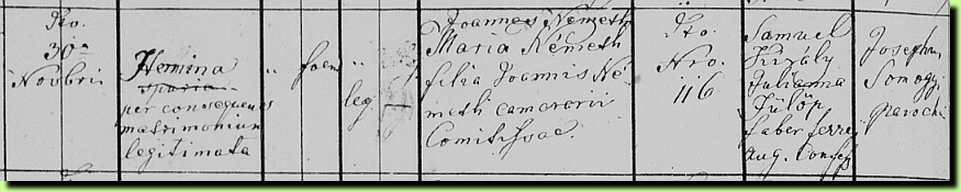 Dto.
30ᵃ
Novbri
Hermina
spuria
per consequens
matrimonium
legitimata
" foem "
leg —
Joannes Németh
Maria Németh
filia Joannis Né-
meth camerarii
Comitissae.
Dto.
Nro.
116
Samuel
Király
Julianna
Fülöp
faber ferra
aug. Confess
Josephus
Somogyi
parochus